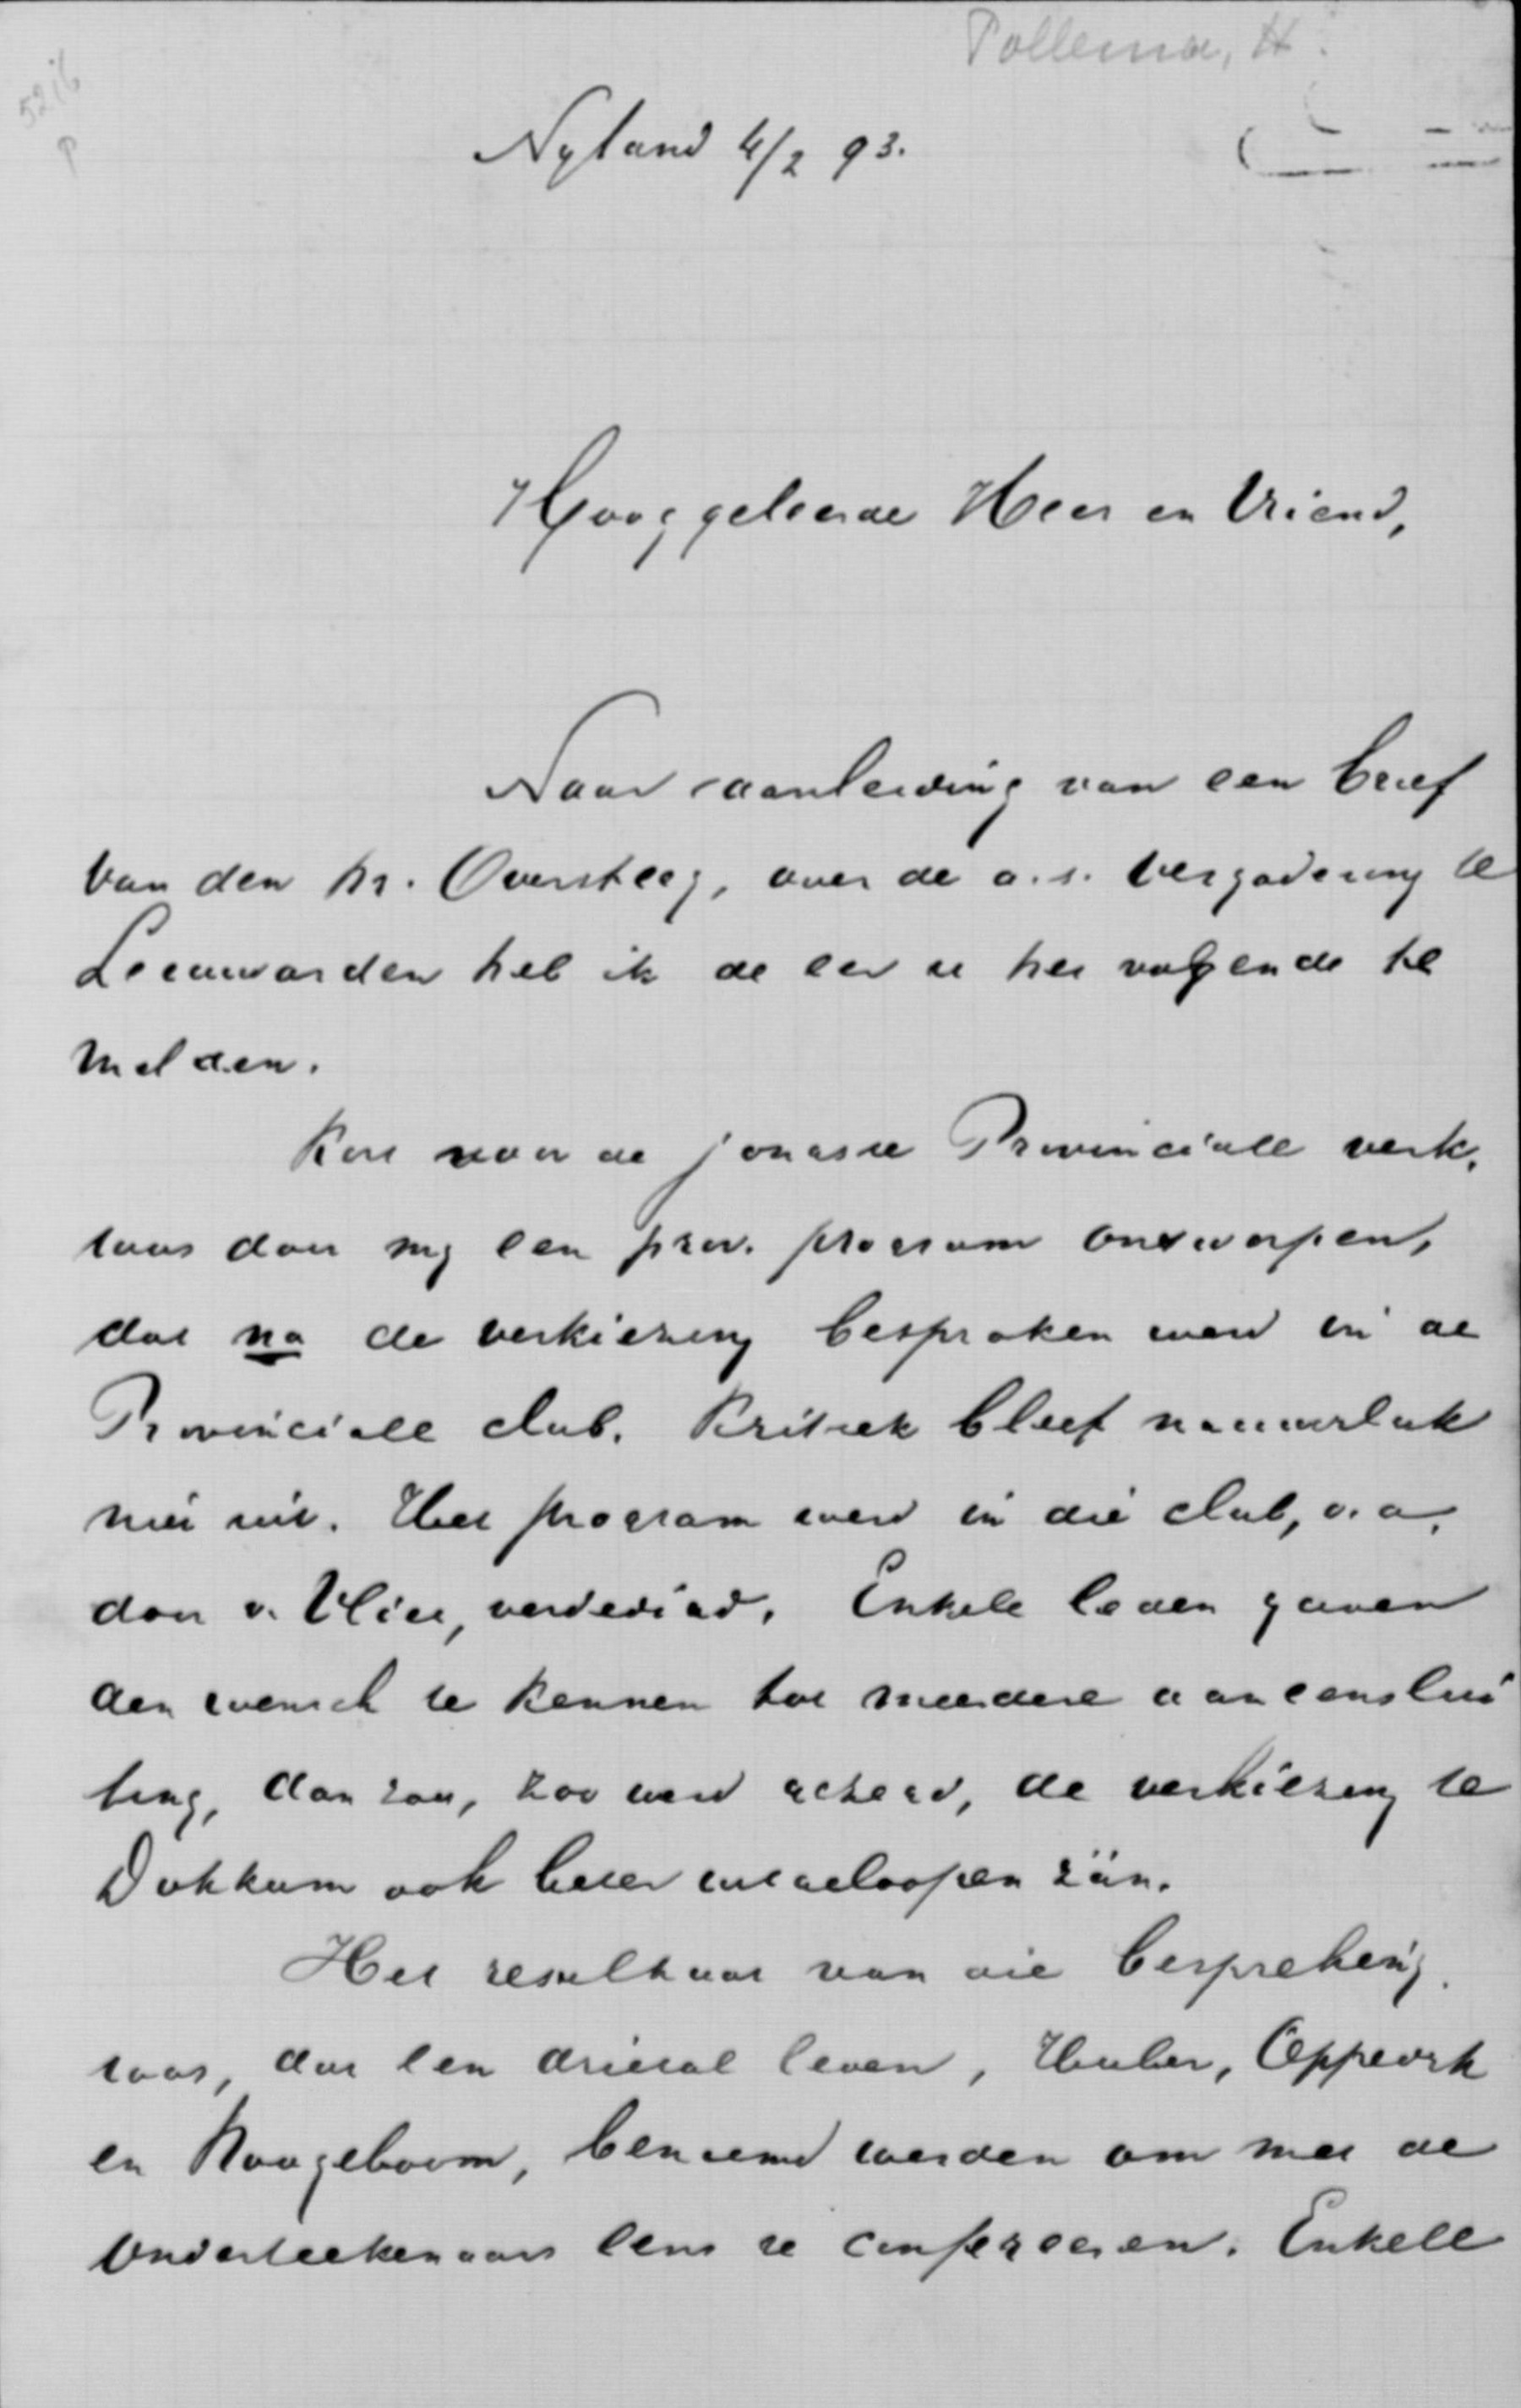 Pollema, H.
5216
P
Nyland 4/2 93.
Hooggeleerde Heer en Vriend,
Naar aanleiding van een brief
van den hr. Oversteeg, over de a.s. vergadering te
Leeuwarden heb ik de eer u het volgende te
melden.
Kort voor de jongste Provinciale verk.
was door mij een prov. program ontworpen,
dat na de verkiezing besproken werd in de
Provinciale club. Kritiek bleef natuurlijk
niet uit. Het program werd in die club, o.a.
door v. Vliet, verdedigd. Enkele leden gaven
den wensch te kennen tot meerdere aaneenslui
ting, dan zou, zoo werd gezegd, de verkiezing te
Dokkum ook beter uitgeloopen zijn.
Het resultaat van die bespreking
was, dat een drietal leden, Huber, Oppedijk
en Hoogeboom, benoemd werden om met de
onderteekenaars eens te confereeren. Enkele